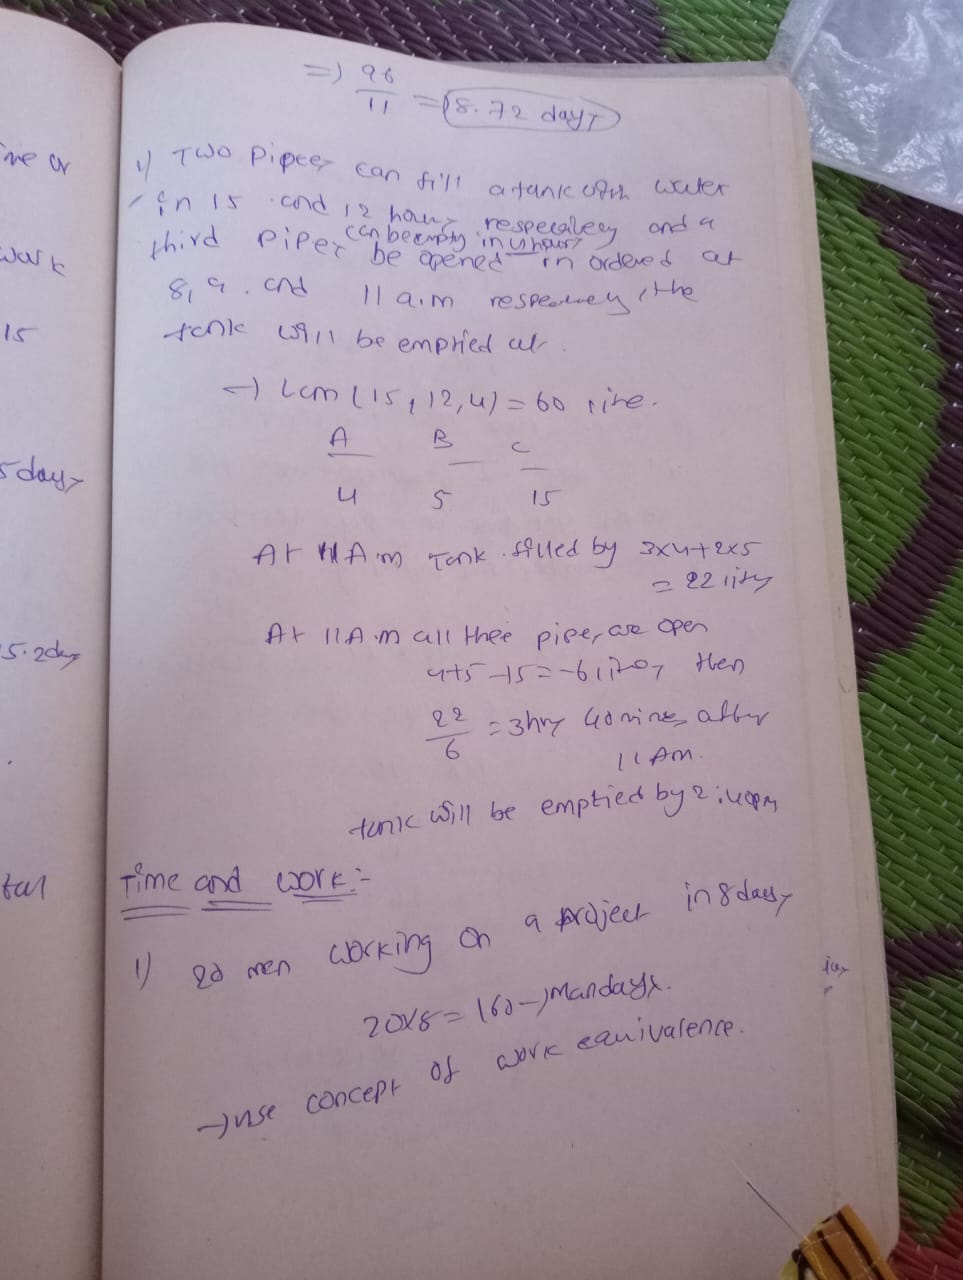 ine or
work
15
5 days
5.2day
tal
=) 96/11 = 8.72 days
1) Two Pipes can fill a tank with water
in 15 and 12 hours respecalely and a
third Pipe can be empty in 4 hours be opened in ordered at
8, 9. and 11 a.m respecively, the
tank will be emptied at.
-) Lcm (15, 12, 4) = 60 litre.
A B C
4 5 15
At 11 A.m Tank filled by 3x4+2x5
= 22 litrs
At 11A.m all thee pipes are open
4+5-15=-6 then
22/6 = 3hrs 40 mins after
11 Am.
tank will be emptied by 2:40pm
Time and work:-
1) 20 men working on a project in 8 days
20x8 = 160 -) Mandays.
-) use concept of work equivalence.